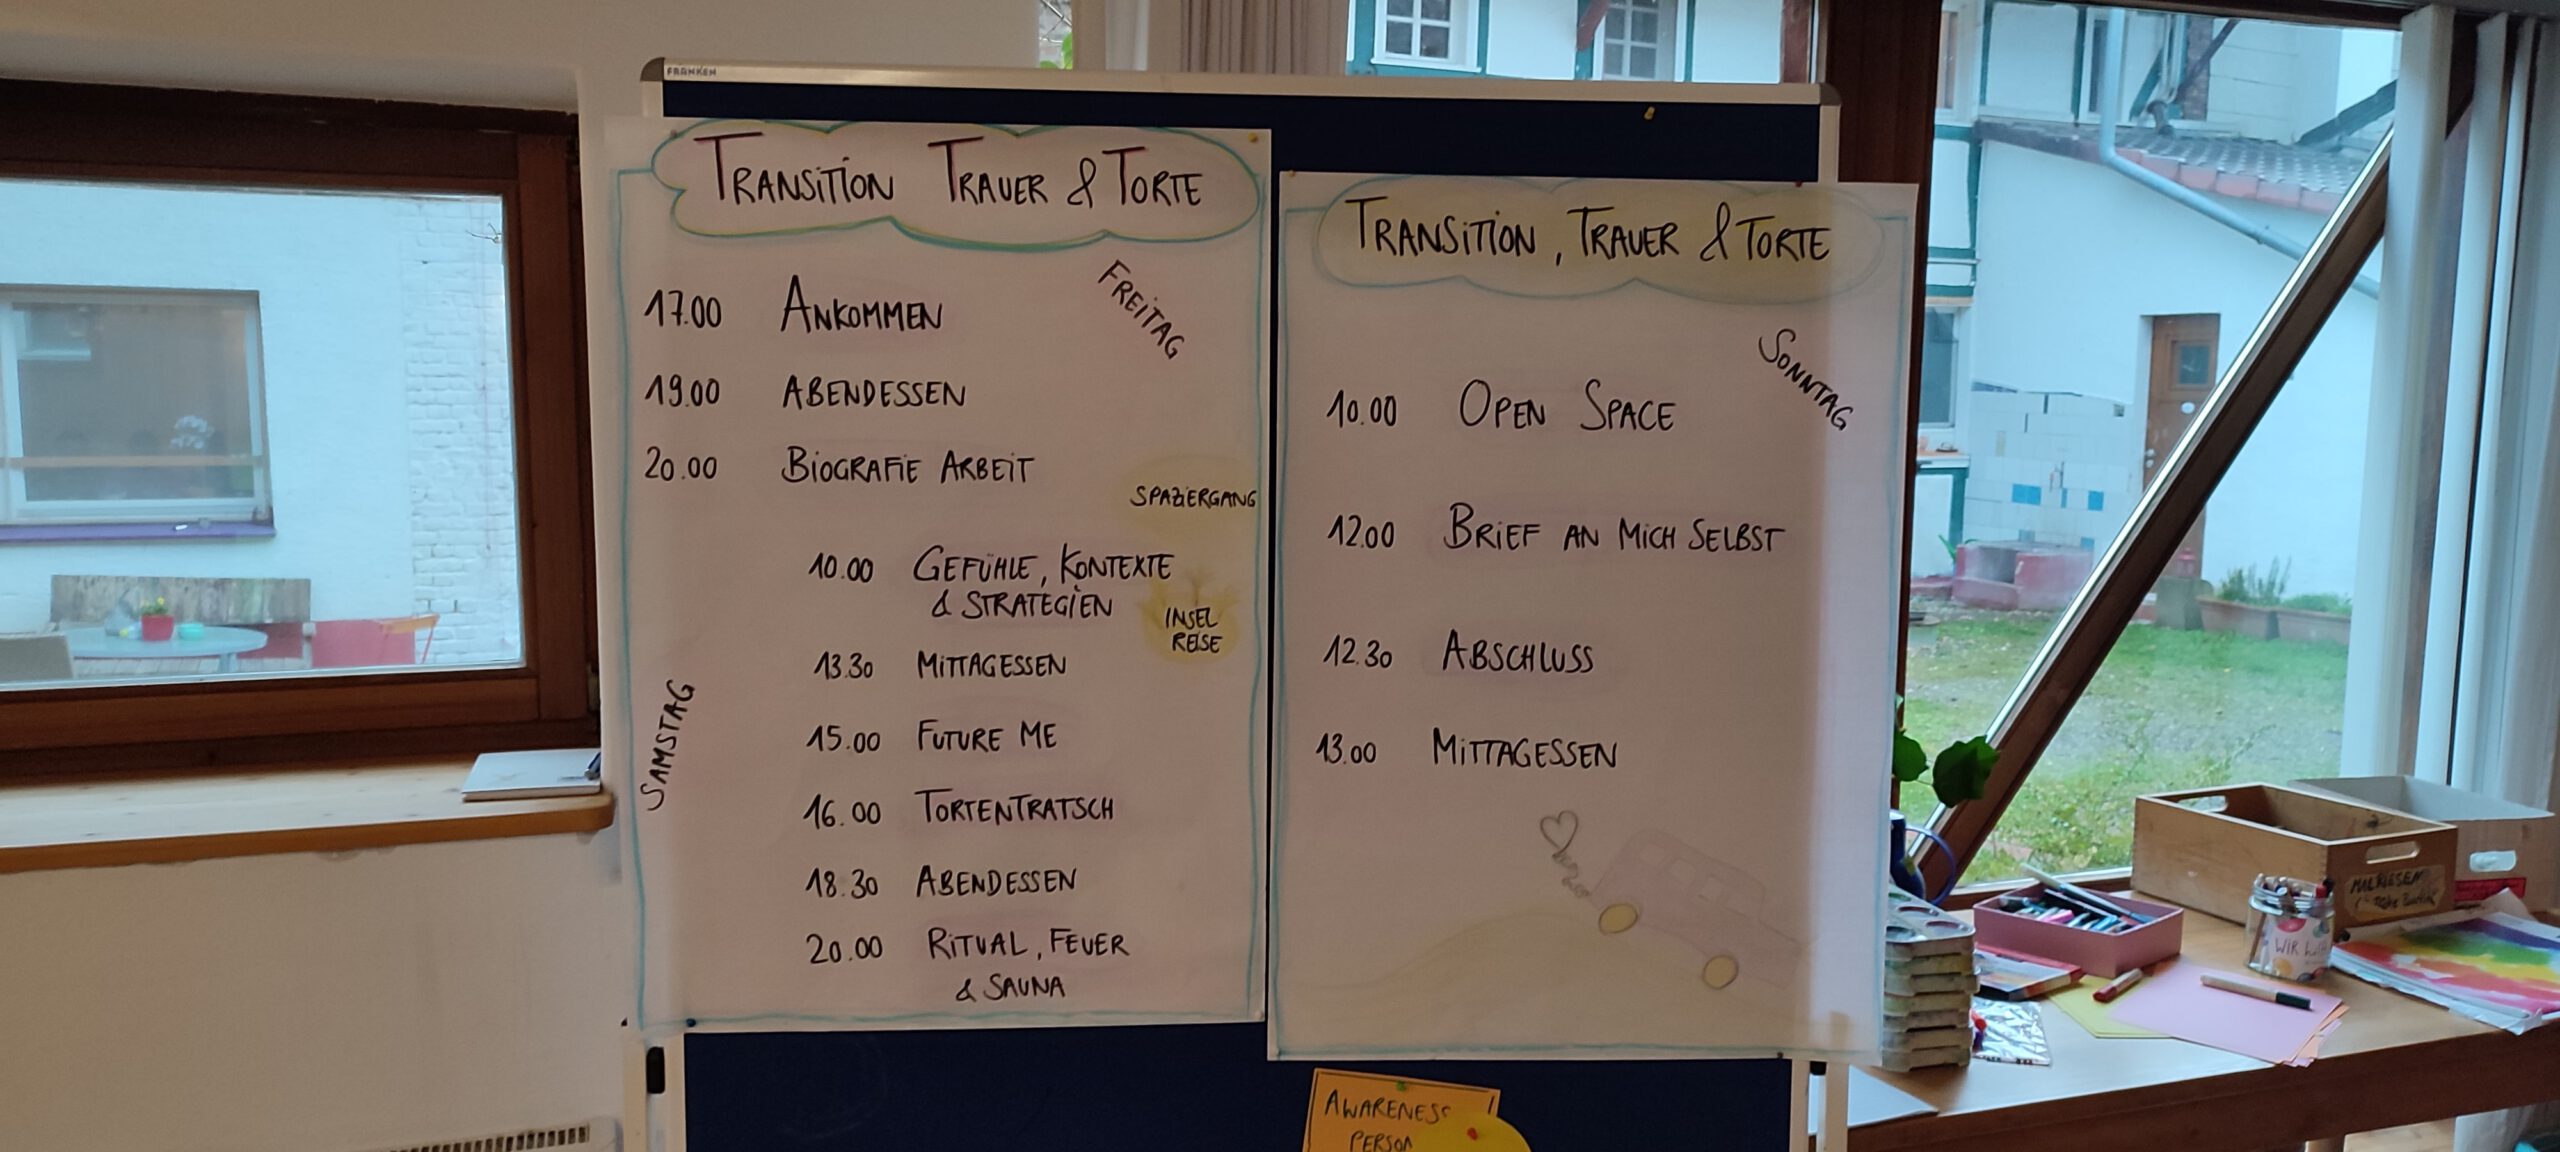 FRANKEN
TRANSITION TRAUER & TORTE
FREITAG
17.00 ANKOMMEN
19.00 ABENDESSEN
20.00 BIOGRAFIE ARBEIT
SPAZIERGANG
SAMSTAG
10.00 GEFÜHLE, KONTEXTE
& STRATEGIEN
INSEL
REISE
13.30 MITTAGESSEN
15.00 FUTURE ME
16.00 TORTENTRATSCH
18.30 ABENDESSEN
20.00 RITUAL, FEUER
& SAUNA
TRANSITION, TRAUER & TORTE
SONNTAG
10.00 OPEN SPACE
12.00 BRIEF AN MICH SELBST
12.30 ABSCHLUSS
13.00 MITTAGESSEN
AWARENESS
PERSON
WIR